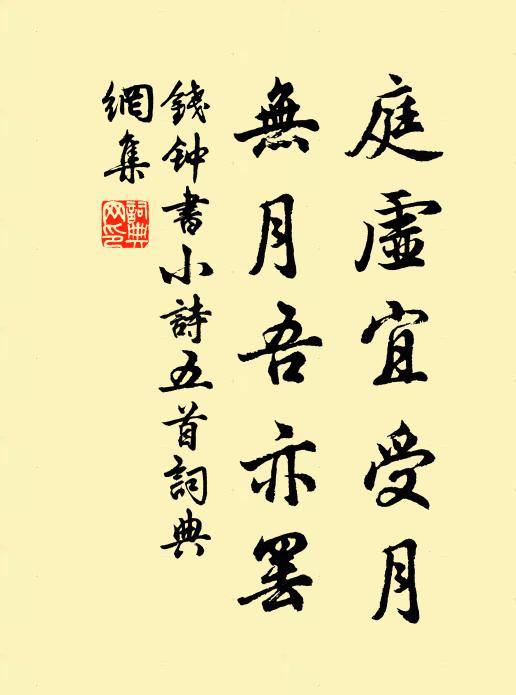 庭虛宜受月
無月吾亦罷
錢钟書小詩五首詞典
網集
詞典
网印